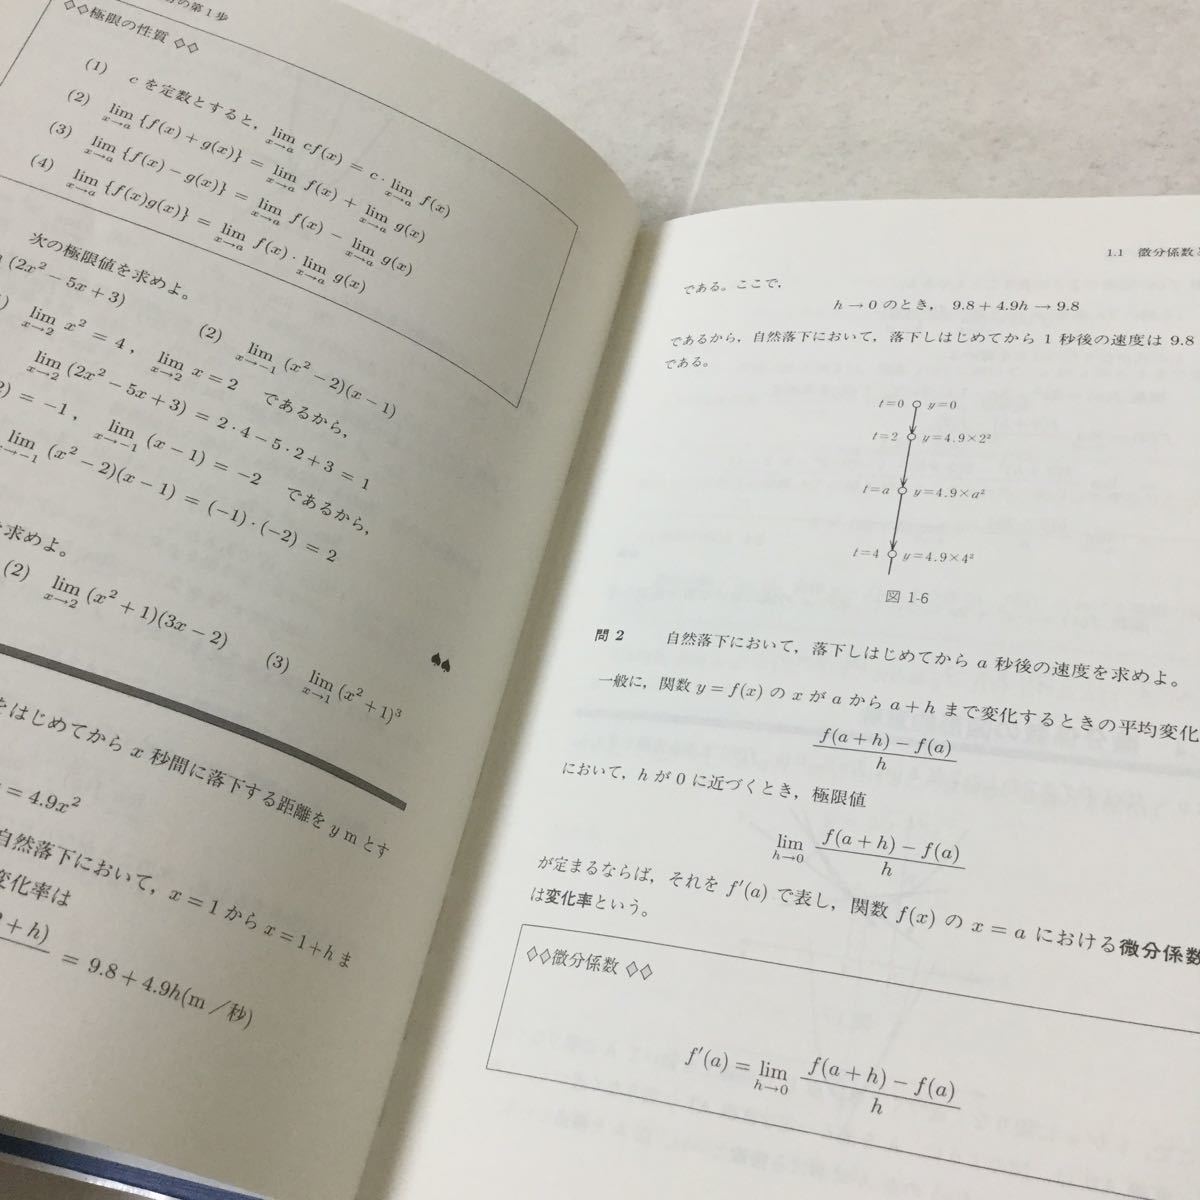 の第1歩
◇◇極限の性質◇◇
(1) c を定数とすると, lim x→a cf(x) = c・lim x→a f(x)
(2) lim x→a {f(x)+g(x)} = lim x→a f(x) + lim x→a g(x)
(3) lim x→a {f(x)−g(x)} = lim x→a f(x) − lim x→a g(x)
(4) lim x→a {f(x)g(x)} = lim x→a f(x)・lim x→a g(x)
次の極限値を求めよ。
(2x²−5x+3) (2) lim x→−1 (x²−2)(x−1)
lim x→2 x² = 4, lim x→2 x = 2 であるから,
lim x→2 (2x²−5x+3) = 2・4−5・2+3 = 1
2) = −1, lim x→−1 (x−1) = −2 であるから,
lim x→−1 (x²−2)(x−1) = (−1)・(−2) = 2
を求めよ。
(2) lim x→2 (x²+1)(3x−2) (3) lim x→1 (x²+1)³
♠♠
をはじめてから x 秒間に落下する距離を y m とす
= 4.9x²
自然落下において, x=1 から x=1+h ま
変化率は
+h)
= 9.8+4.9h(m/秒)
1.1 微分係数と
である。ここで,
h→0 のとき, 9.8+4.9h→9.8
であるから, 自然落下において, 落下しはじめてから 1 秒後の速度は 9.8
である。
t=0 y=0
t=2 y=4.9×2²
t=a y=4.9×a²
t=4 y=4.9×4²
図 1-6
問 2 自然落下において, 落下しはじめてから a 秒後の速度を求めよ。
一般に, 関数 y=f(x) の x が a から a+h まで変化するときの平均変化
f(a+h)−f(a)
h
において, h が 0 に近づくとき, 極限値
lim h→0 f(a+h)−f(a)
h
が定まるならば, それを f′(a) で表し, 関数 f(x) の x=a における微分係数
は変化率という。
◇◇微分係数◇◇
f′(a) = lim h→0 f(a+h)−f(a)
h